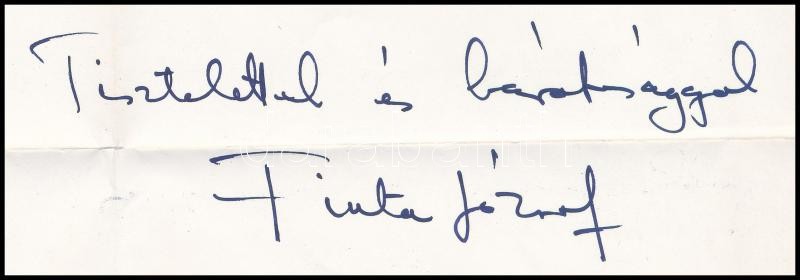 Tisztelettel és barátsággal
Finta József